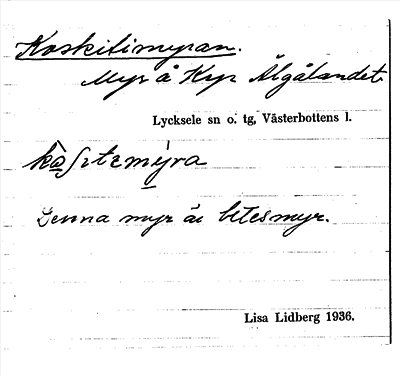 Koskitimyran.
Myr å Kpr Älgålandet
Lycksele sn o. tg, Västerbottens l.
Denna myr är betesmyr.
Lisa Lidberg 1936.